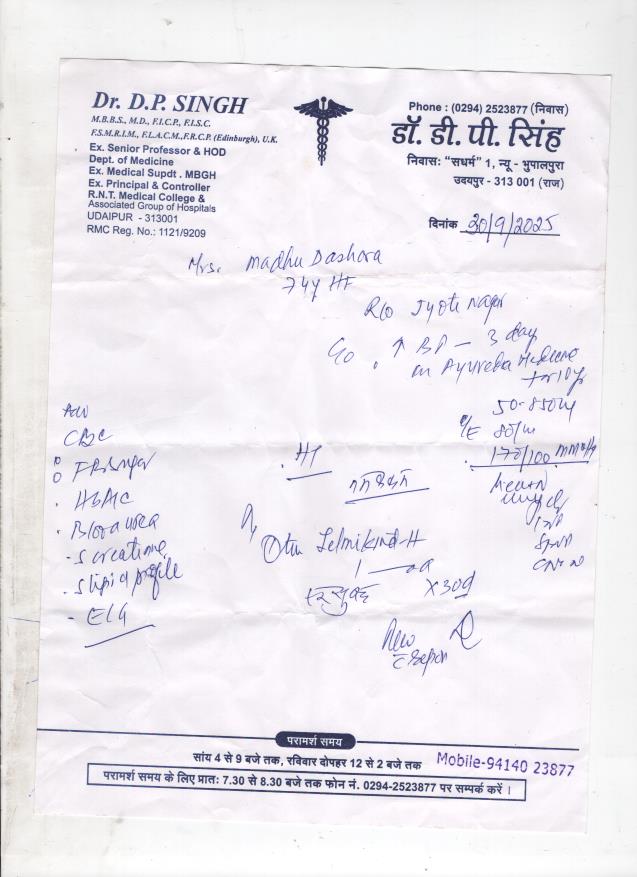 Dr. D.P. SINGH
M.B.B.S., M.D., F.I.C.P., F.I.S.C.
F.S.M.R.I.M., F.L.A.C.M., F.R.C.P. (Edinburgh), U.K.
Ex. Senior Professor & HOD
Dept. of Medicine
Ex. Medical Supdt. MBGH
Ex. Principal & Controller
R.N.T. Medical College &
Associated Group of Hospitals
UDAIPUR - 313001
RMC Reg. No.: 1121/9209
Phone : (0294) 2523877 (निवास)
डॉ. डी. पी. सिंह
निवास: "सधर्म" 1, न्यू - भुपालपुरा
उदयपुर - 313 001 (राज)
दिनांक 30/9/2025
Mrs. Madhu Dashora
74y HF
R/O Jyoti Nagar
C/o . ↑ BP - 3 day
on Ayurveda Medicine
for 10 yr
80/m
170/100 mmHg
CBC
HbA1C
Blood urea
S creatinine
S lipid profile
ECG
HT
Telmikind-H
X 30d
Review
परामर्श समय
सांय 4 से 9 बजे तक, रविवार दोपहर 12 से 2 बजे तक
Mobile-94140 23877
परामर्श समय के लिए प्रातः 7.30 से 8.30 बजे तक फोन नं. 0294-2523877 पर सम्पर्क करें ।